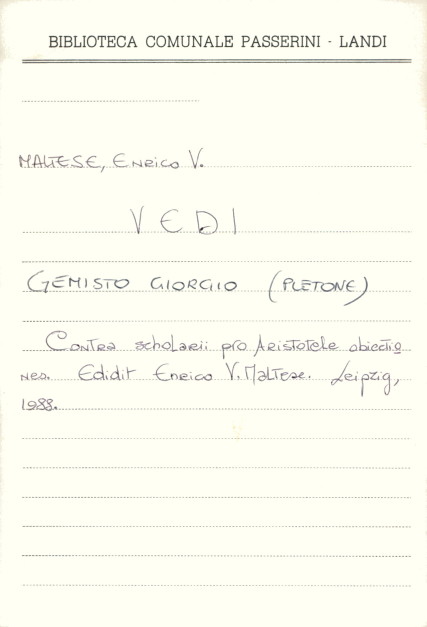 BIBLIOTECA COMUNALE PASSERINI - LANDI
MALTESE, Enrico V.
VEDI
GEMISTO GIORGIO (PLETONE)
Contra scholarii pro Aristotele obiectio
nes. Edidit Enrico V. Maltese. Leipzig,
1988.